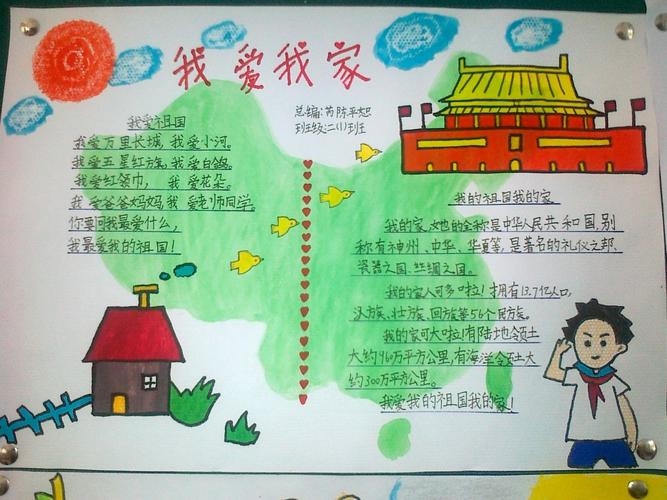 我爱我家
总编:芮陈平恕
班级:二(1)班
我爱祖国
我爱万里长城,我爱小河。
我爱五星红旗,我爱白鸽。
我爱红领巾, 我爱花朵。
我爱爸爸妈妈我爱老师同学。
你要问我最爱什么,
我最爱我的祖国!
我的祖国我的家
我的家,她的全称是中华人民共和国,别
称有神州、中华、华夏等,是著名的礼仪之邦、
瓷器之国、丝绸之国。
我的家人可多啦!拥有13.7亿人口,
汉族、壮族、回族等56个民族。
我的家可大啦!有陆地领土
大约960万平方公里,有海洋领土大
约300万平方公里。
我爱我的祖国我的家!